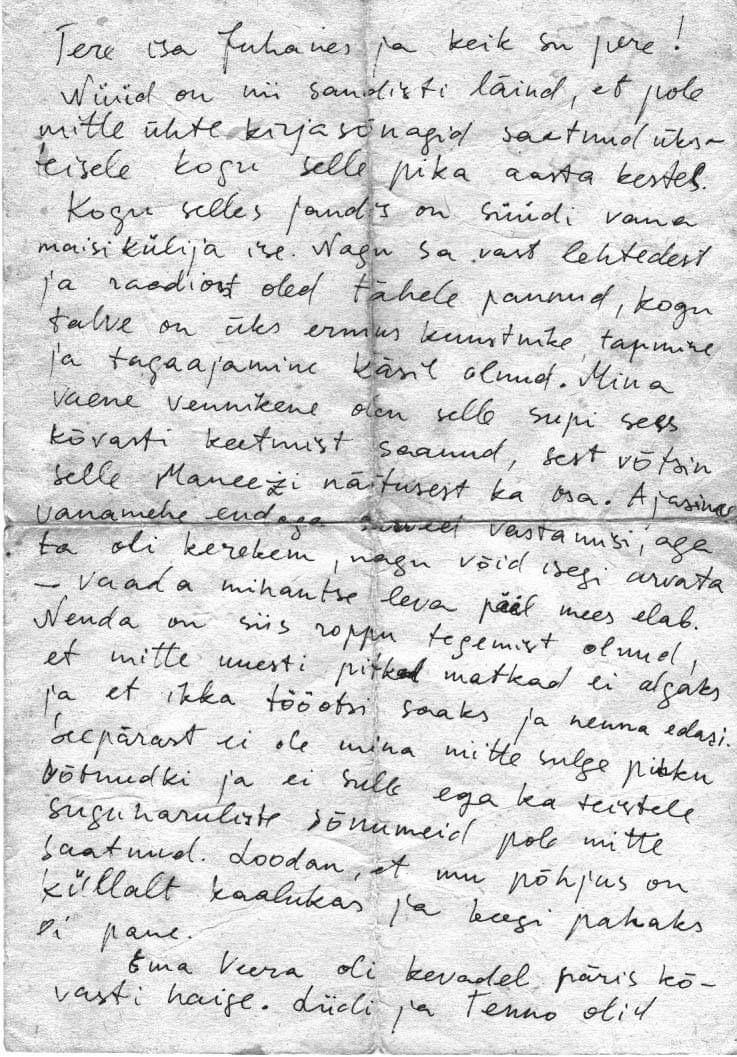 Tere isa Juhanes ja keik su pere!
Nüüd on nii sandisti läind, et pole
mitte ühte kirjasõnagid saatnud üks-
teisele kogu selle pika aasta kestel.
Kogu selles jandis on süüdi vana
maisikülija ise. Nagu sa vast lehtedest
ja raadiost oled tähele pannud, kogu
talve on üks ermus kunstnike tapmine
ja tagaajamine käsil olnud. Mina
vaene vennikene olen selle supi sees
kõvasti keetmist saanud, sest võtsin
selle Maneeži näitusest ka osa. Ajasime
vanamehe endaga vastamisi, aga
ta oli kerekem, nagu võid isegi arvata
– vaada mihantse leva pääl mees elab.
Nenda on siis roppu tegemist olnud,
et mitte uuesti pitkad matkad ei algaks
ja et ikka tööotsi saaks ja nenna edasi.
Seepärast ei ole mina mitte sulge pihku
võtnudki ja ei sulle ega ka teistele
suguharuliste sõnumeid pole mitte
saatnud. Loodan, et mu põhjus on
küllalt kaalukas ja keegi pahaks
ei pane.
Ema Veera oli kevadel päris kõ-
vasti haige. Liidi ja Tenno olid